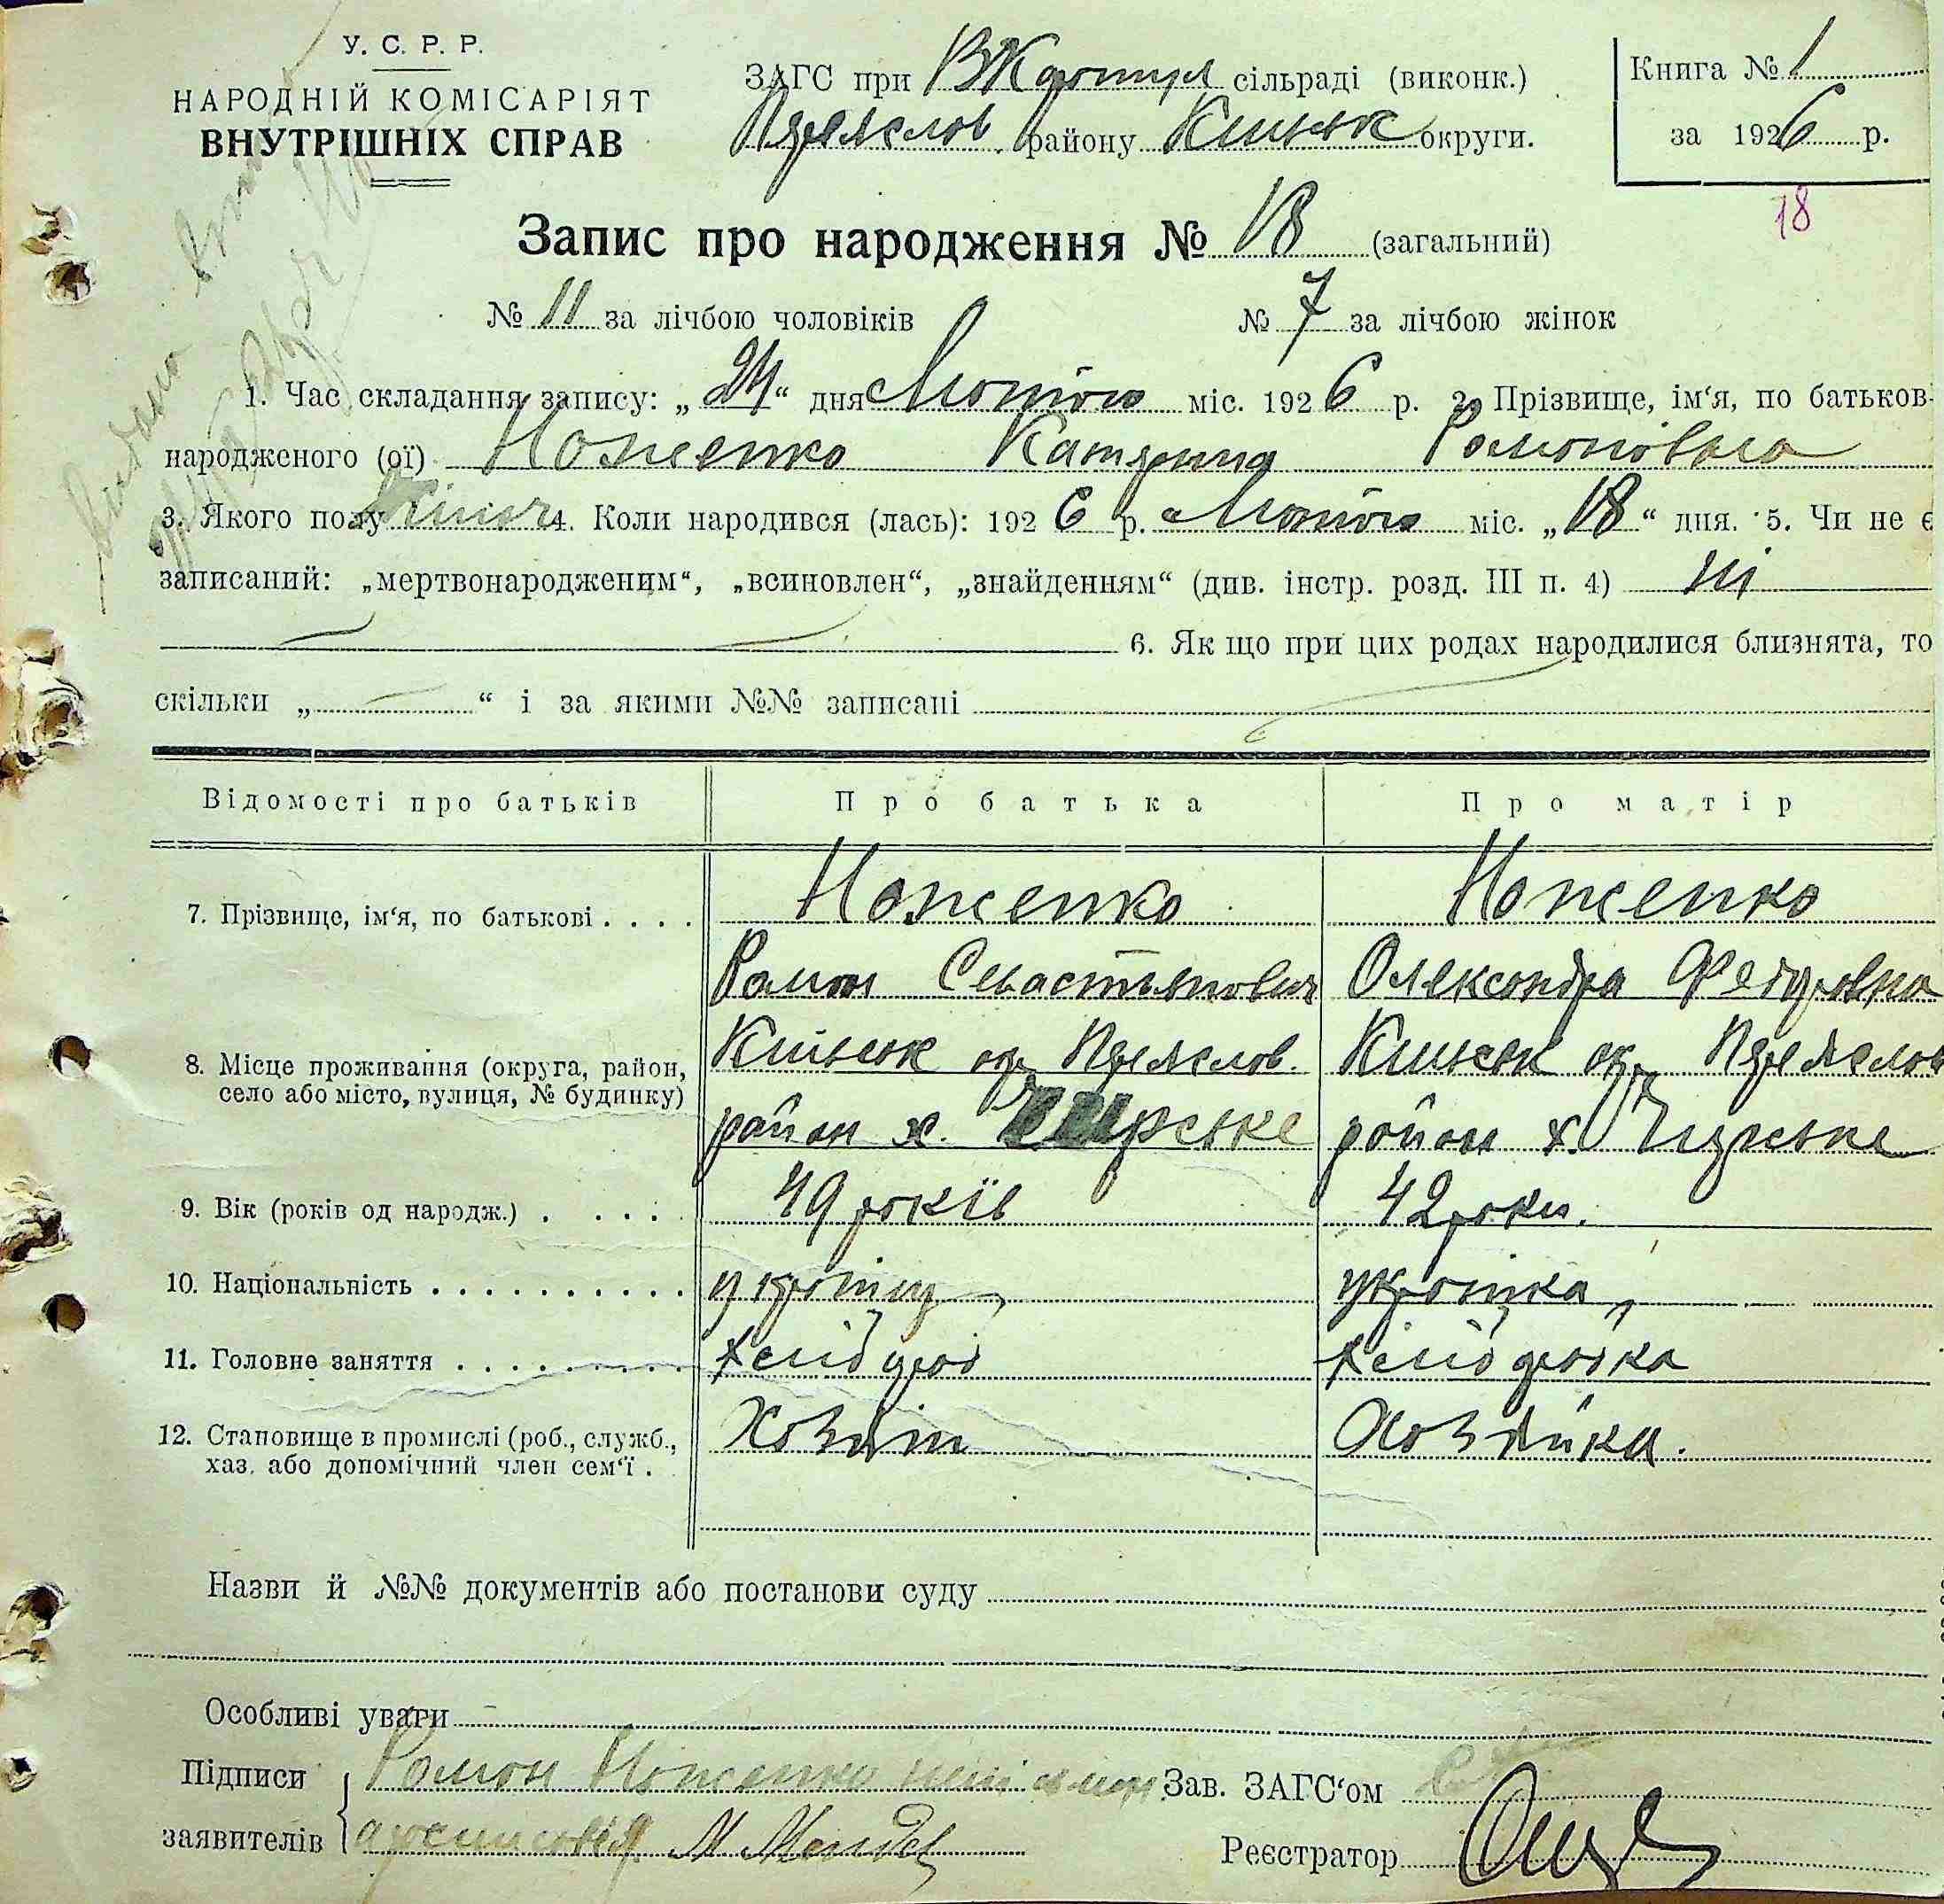 У. С. Р. Р.
НАРОДНІЙ КОМІСАРІЯТ
ВНУТРІШНІХ СПРАВ
ЗАГС при сільраді (виконк.)
Переяслов. району Київськ округи.
Книга № 1
за 1926 р.
18
Запис про народження № 18 (загальний)
№ 11 за лічбою чоловіків № 7 за лічбою жінок
1. Час складання запису: „24“ дня Лютого міс. 1926 р. 2. Прізвище, ім‘я, по батьков-
народженого (ої) Ноженко Катерина Романовна
3. Якого полу жіноч 4. Коли народився (лась): 1926 р. Лютого міс. „18“ дня. 5. Чи не є
записаний: „мертвонародженим“, „всиновлен“, „знайденням“ (див. інстр. розд. III п. 4) ні
6. Як що при цих родах народилися близнята, то
скільки „ “ і за якими №№ записані
Відомості про батьків Про батька Про матір
7. Прізвище, ім‘я, по батькові . . . . Ноженко Ноженко
Роман Севастьянович Олександра Федоровна
8. Місце проживання (округа, район, Київськ окр Переяслов. Київськ окр Переяслов
село або місто, вулиця, № будинку) район х. район х. Чирське
9. Вік (років од народж.) . . . . . 49 років 42 роки.
10. Національність . . . . . . . . . . українц українка
11. Головне заняття . . . . . . . . . хлібороб хліборобка
12. Становище в промислі (роб., служб., Хозяїн Хозяйка.
хаз. або допомічний член сем‘ї .
Назви й №№ документів або постанови суду
Особливі уваги
Підписи Роман Ноженко Зав. ЗАГС‘ом
заявителів
Реєстратор